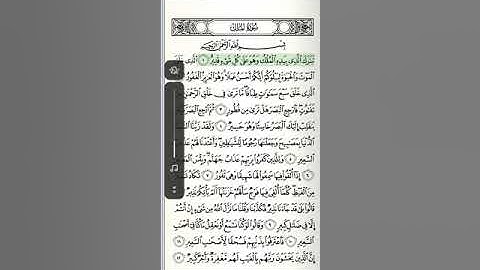 سورة الملك
بسم الله الرحمن الرحيم
تبارك الذي بيده الملك وهو على كل شيء قدير ١ الذي خلق
الموت والحياة ليبلوكم أيكم أحسن عملا وهو العزيز الغفور
الذي خلق سبع سماوات طباقا ما ترى في خلق الرحمن من
تفاوت فارجع البصر هل ترى من فطور ٣ ثم ارجع البصر
ينقلب إليك البصر خاسئا وهو حسير ٤ ولقد زينا السماء
بمصابيح وجعلناها رجوما للشياطين وأعتدنا لهم عذاب
السعير ٥ وللذين كفروا بربهم عذاب جهنم وبئس المصير
٦ إذا ألقوا فيها سمعوا لها شهيقا وهي تفور ٧ تكاد تميز
من الغيظ كلما ألقي فيها فوج سألهم خزنتها ألم يأتكم نذير ٨
قالوا بلى قد جاءنا نذير فكذبنا وقلنا ما نزل الله من شيء إن أنتم
إلا في ضلال كبير ٩ وقالوا لو كنا نسمع أو نعقل ما كنا في أصحاب
السعير ١٠ فاعترفوا بذنبهم فسحقا لأصحاب السعير ١١
إن الذين يخشون ربهم بالغيب لهم مغفرة وأجر كبير ١٢